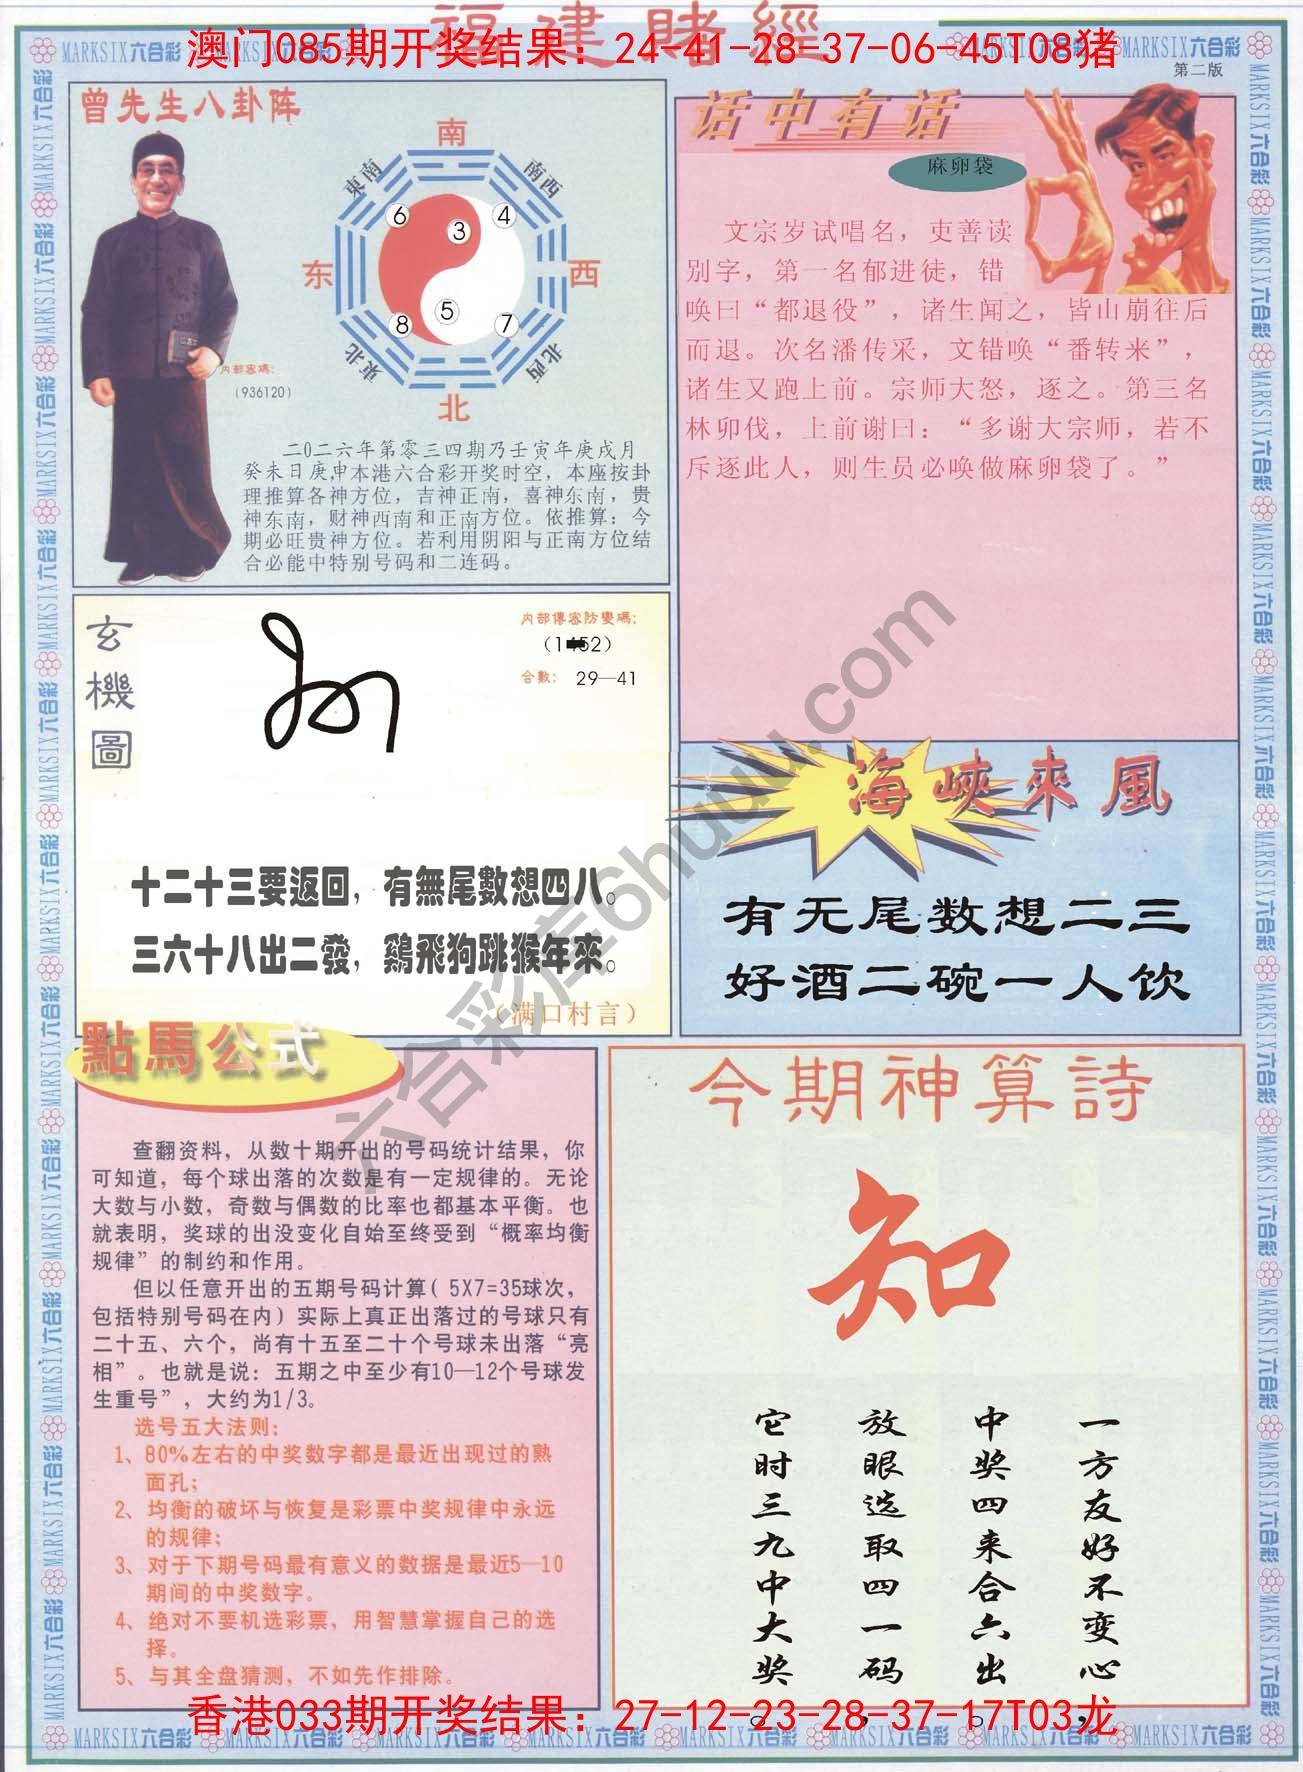 福建賭經
澳门085期开奖结果：24-41-28-37-06-40T08猪
MARKSIX六合彩
第二版
曾先生八卦阵
南
東南
南西
6
3
4
东
西
5
8
7
東北
北西
北
内部密碼：
(936120)
二0二六年第零三四期乃壬寅年庚戌月
癸未日庚申本港六合彩开奖时空，本座按卦
理推算各神方位，吉神正南，喜神东南，贵
神东南，财神西南和正南方位。依推算：今
期必旺贵神方位。若利用阴阳与正南方位结
合必能中特别号码和二连码。
话中有话
麻卵袋
文宗岁试唱名，吏善读
别字，第一名郁进徒，错
唤曰“都退役”，诸生闻之，皆山崩往后
而退。次名潘传采，文错唤“番转来”，
诸生又跑上前。宗师大怒，逐之。第三名
林卯伐，上前谢曰：“多谢大宗师，若不
斥逐此人，则生员必唤做麻卵袋了。”
玄機圖
内部傳密防變碼：
合數： 29—41
十二十三要返回，有無尾數想四八。
三六十八出二發，鷄飛狗跳猴年來。
（满口村言）
海峽來風
有无尾数想二三
好酒二碗一人饮
點馬公式
查翻资料，从数十期开出的号码统计结果，你
可知道，每个球出落的次数是有一定规律的。无论
大数与小数，奇数与偶数的比率也都基本平衡。也
就表明，奖球的出没变化自始至终受到“概率均衡
规律”的制约和作用。
但以任意开出的五期号码计算( 5X7=35球次，
包括特别号码在内）实际上真正出落过的号球只有
二十五、六个，尚有十五至二十个号球未出落“亮
相”。也就是说：五期之中至少有10—12个号球发
生重号”，大约为1/3。
选号五大法则：
1、80%左右的中奖数字都是最近出现过的熟
面孔；
2、均衡的破坏与恢复是彩票中奖规律中永远
的规律；
3、对于下期号码最有意义的数据是最近5—10
期间的中奖数字。
4、绝对不要机选彩票，用智慧掌握自己的选
择。
5、与其全盘猜测，不如先作排除。
今期神算詩
知
一方友好不变心，
中奖四来合六出。
放眼选取四一码，
它时三九中大奖。
香港033期开奖结果：27-12-23-28-37-17T03龙
六合彩库6huuu.com